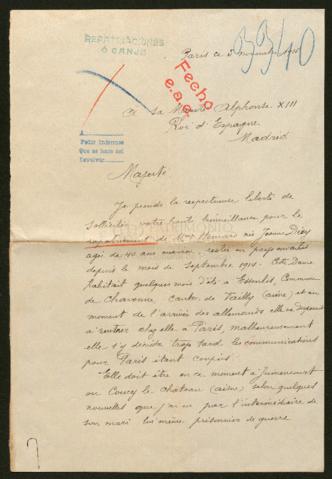 REPATRIACIONES
Ó CANJE
3340
Paris ce 5 novembre
Fecho
e.a.g.
A
Pedir informes
Que se hace así
Devolver
A Sa Majesté Alphonse XIII
Roi d'Espagne
Madrid
Majesté
Je prends la respectueuse liberté de
solliciter votre haute bienveillance pour le
rapatriement de Mme née Jeanne
agée de 40 ans environ, restée en pays envahis
depuis le mois de Septembre 1914. Cette Dame
habitait quelques mois d'été à Commune
de Canton de (aisne) et au
moment de l'arrivée des allemands elle se disposait
à rentrer chez elle à Paris, malheureusement
elle s'y décida trop tard les communications
pour Paris étant coupées.
Elle doit être en ce moment à
ou Coucy le château (aisne) selon quelques
nouvelles que j'ai eu par l'intermédiaire de
son mari lui même prisonnier de guerre